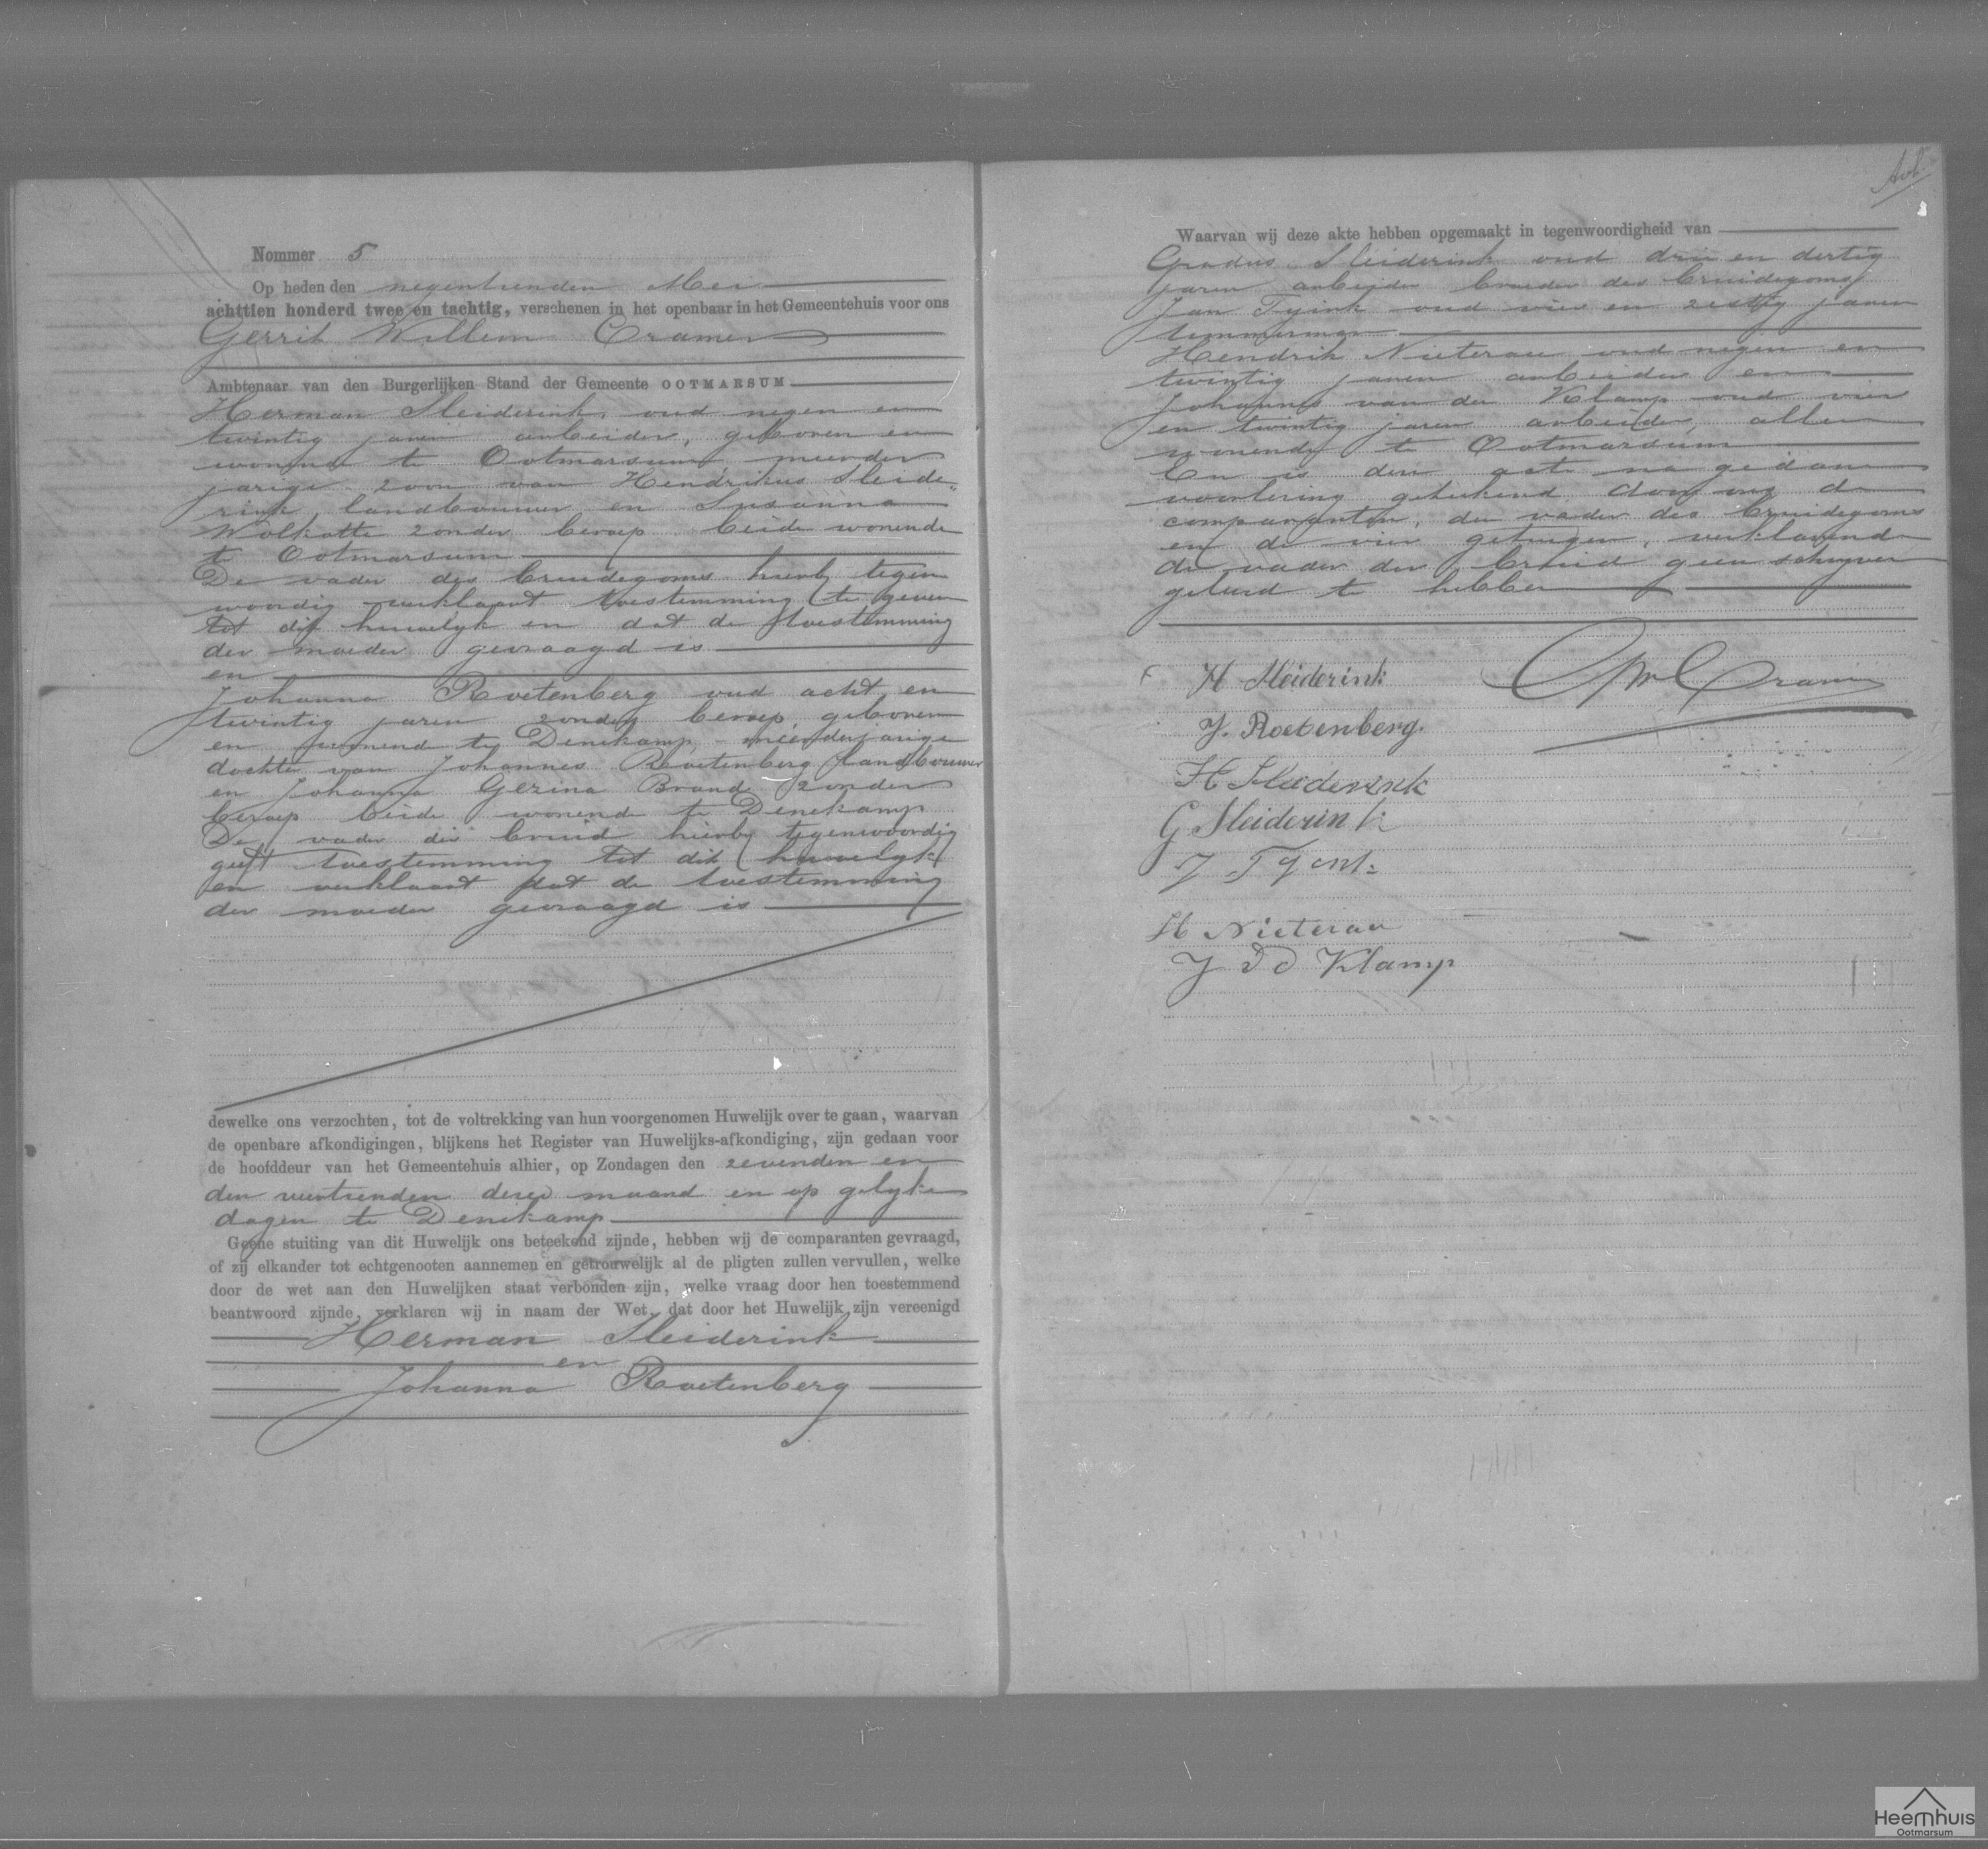 Nommer 5
Op heden den negentienden Mei
achttien honderd twee en tachtig, verschenen in het openbaar in het Gemeentehuis voor ons
Gerrit Willem Cramer
Ambtenaar van den Burgerlijken Stand der Gemeente OOTMARSUM
Herman Sleiderink, oud negen en
twintig jaren arbeider, geboren en
wonende te Ootmarsum meerder
jarige zoon van Hendrikus Sleide„
rink, landbouwer en Susanna
Wolkotte zonder beroep beide wonende
te Ootmarsum
De vader des bruidegoms hierby tegen
woordig verklaart toestemming te geven
tot dit huwelyk en dat de toestemming
der moeder gevraagd is
en
Johanna Roetenberg oud acht en
twintig jaren zonder beroep, geboren
en wonende te Denekamp, meerderjarige
dochter van Johannes Roetenberg landbouwer
en Johanna Gezina Brand zonder
beroep beide wonende te Denekamp
De vader der bruid hierby tegenwoordig
geeft toestemming tot dit huwelyk
en verklaart dat de toestemming
der moeder gevraagd is
dewelke ons verzochten, tot de voltrekking van hun voorgenomen Huwelijk over te gaan, waarvan
de openbare afkondigingen, blijkens het Register van Huwelijks-afkondiging, zijn gedaan voor
de hoofddeur van het Gemeentehuis alhier, op Zondagen den zevenden en
den veertienden dezer maand en op gelyke
dagen te Denekamp
Geene stuiting van dit Huwelijk ons beteekend zijnde, hebben wij de comparanten gevraagd,
of zij elkander tot echtgenooten aannemen en getrouwelijk al de pligten zullen vervullen, welke
door de wet aan den Huwelijken staat verbonden zijn, welke vraag door hen toestemmend
beantwoord zijnde, verklaren wij in naam der Wet, dat door het Huwelijk zijn vereenigd
Herman Sleiderink
en
Johanna Roetenberg
Waarvan wij deze akte hebben opgemaakt in tegenwoordigheid van
Gradus Sleiderink oud drie en dertig
jaren arbeider broeder des bruidegoms
Jan Tyink oud vier en zestig jaren
timmerman
Hendrik Nieterau oud negen en
twintig jaren arbeider en
Johannes van der Klamp oud vier
en twintig jaren arbeider, allen
wonende te Ootmarsum
En is deze acte na gedane
voorlezing geteekend door ons de
comparanten, den vader des bruidegoms
en de vier getuigen, verklarende
de vader der bruid geen schryven
geleerd te hebben
H Sleiderink
GW Cramer
J. Roetenberg.
H Sleiderink
G Sleiderink
J Tyink
H Nieterau
J v d Klamp
Heemhuis
Ootmarsum